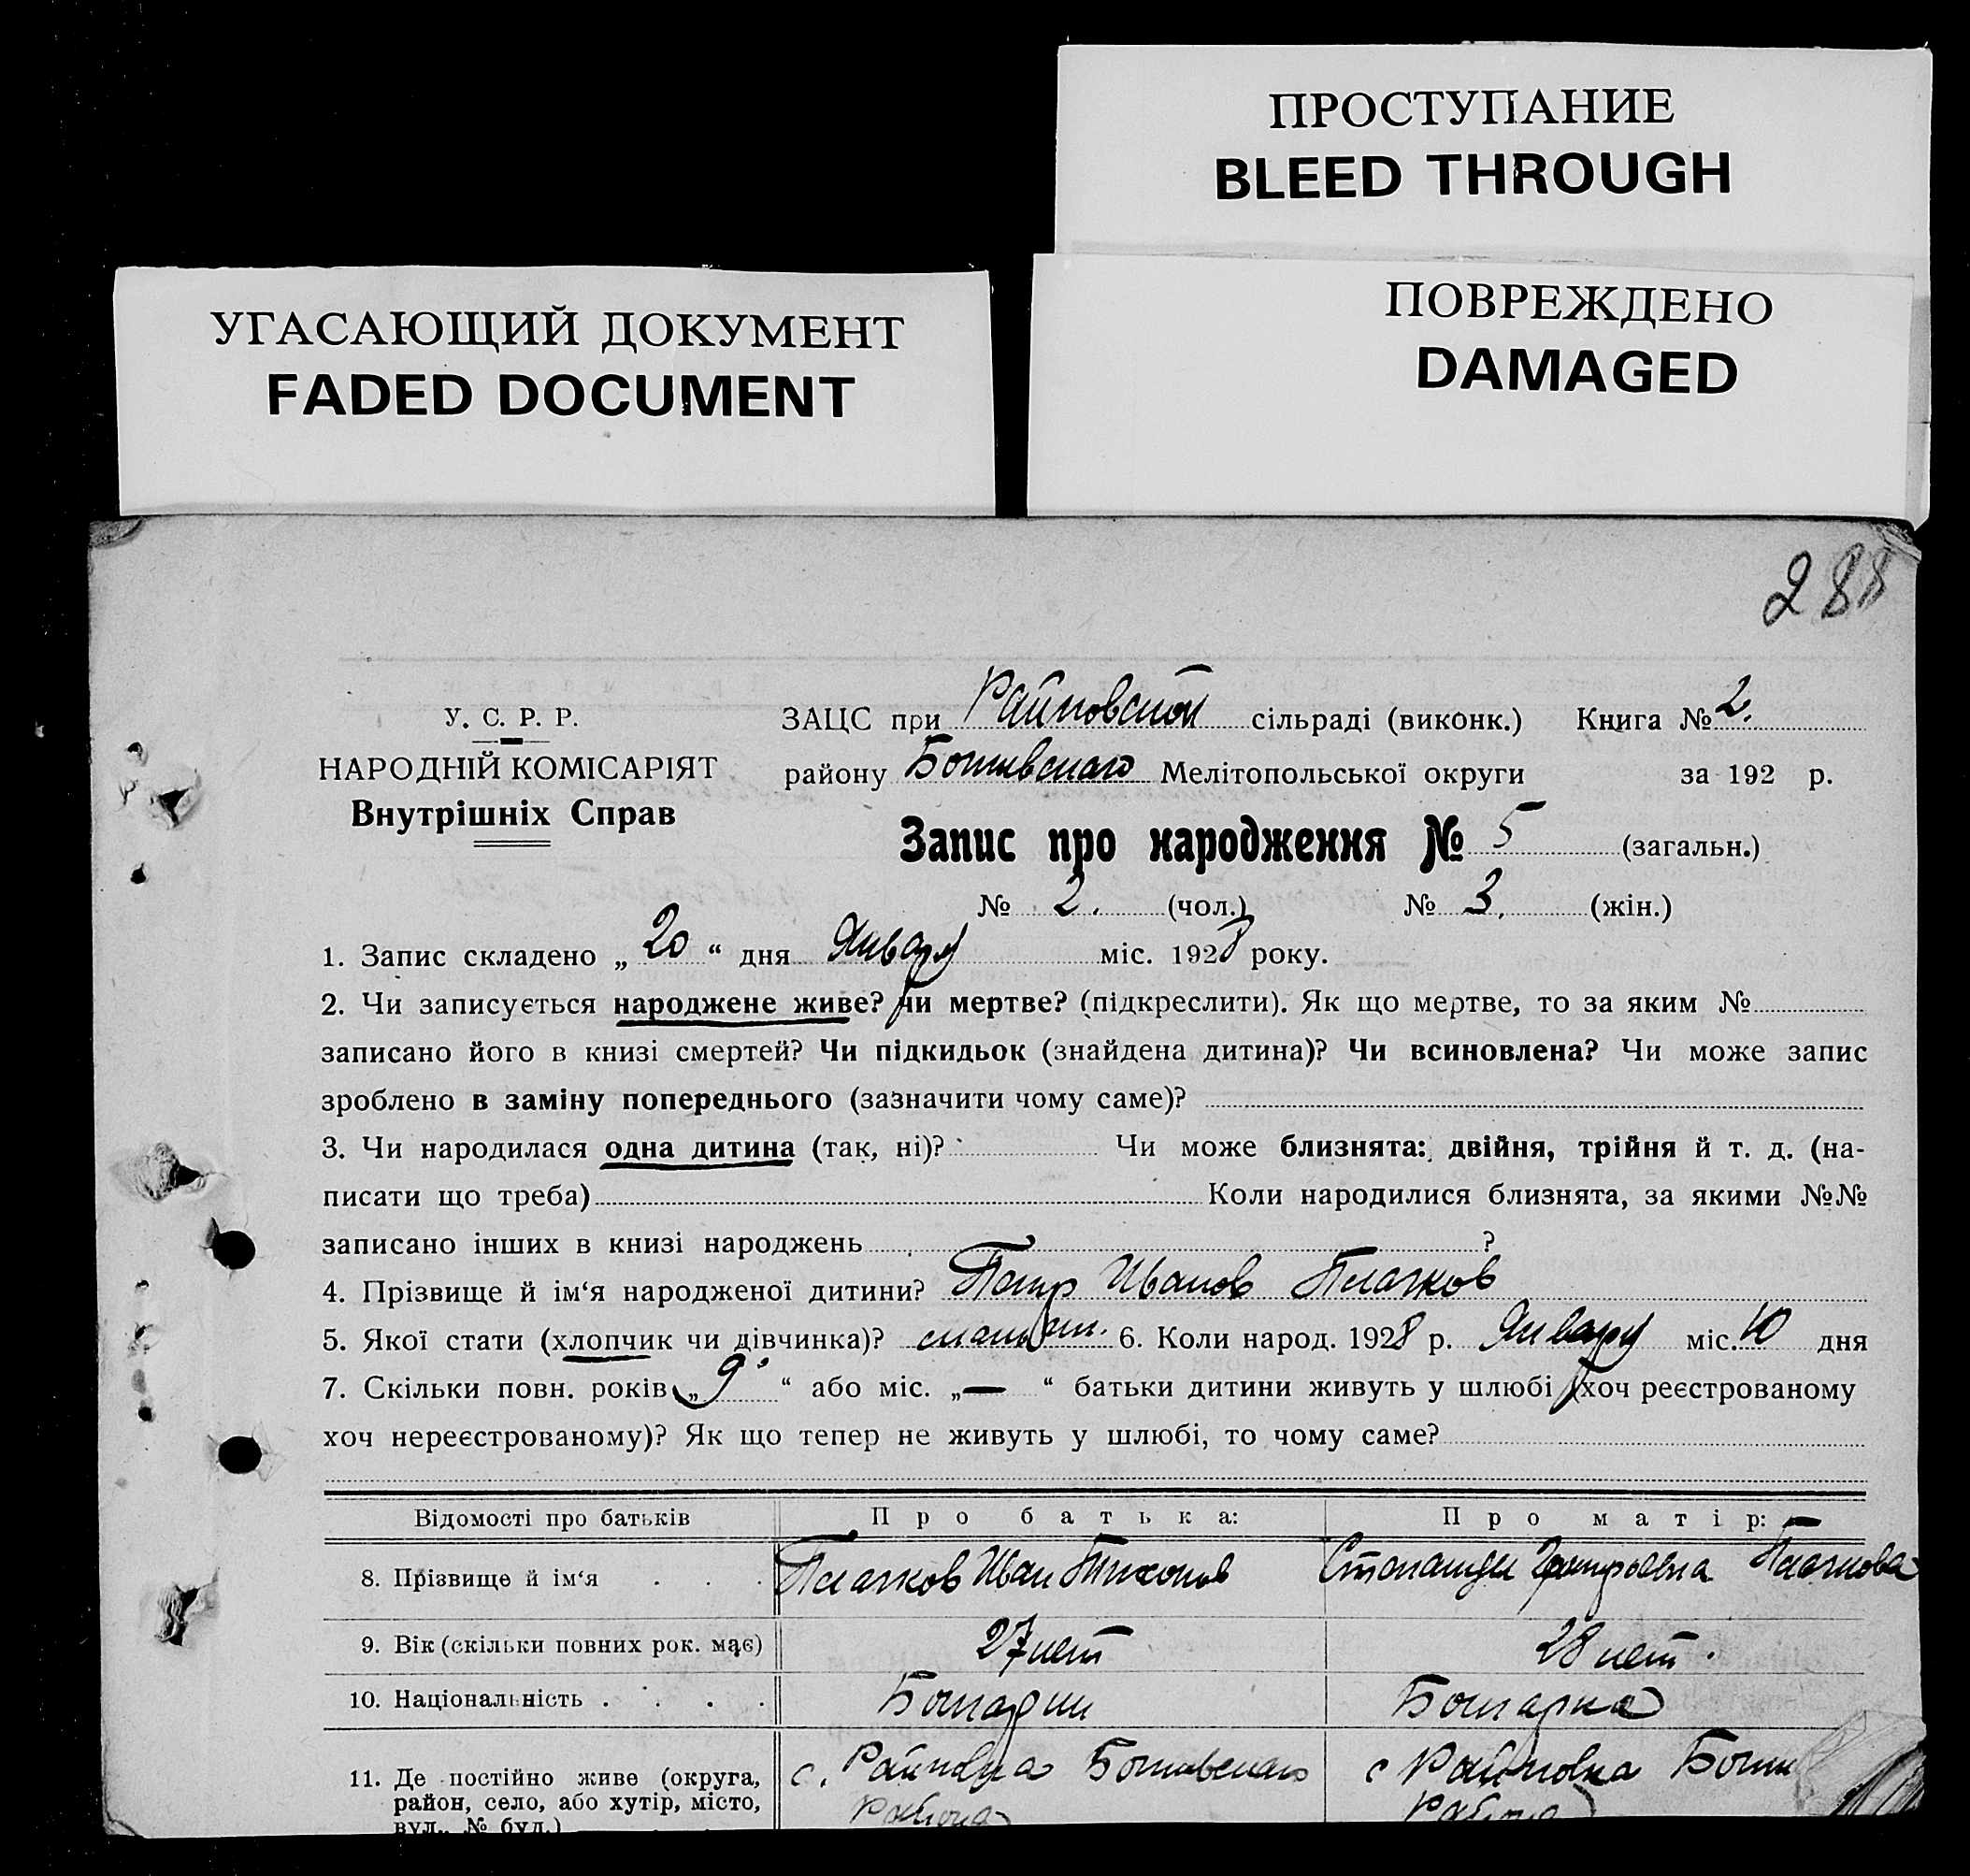 ПРОСТУПАНИЕ
BLEED THROUGH
УГАСАЮЩИЙ ДОКУМЕНТ
FADED DOCUMENT
ПОВРЕЖДЕНО
DAMAGED
288
У. С. Р. Р.
НАРОДНІЙ КОМІСАРІЯТ
Внутрішніх Справ
ЗАЦС при Райновской сільраді (виконк.) Книга № 2.
району Ботивскаго Мелітопольської округи за 192 р.
Запис про народження № 5 (загальн.)
№ 2. (чол.) № 3. (жін.)
1. Запис складено „ 20 “ дня Январу міс. 1928 року.
2. Чи записується народжене живе? чи мертве? (підкреслити). Як що мертве, то за яким №
записано його в книзі смертей? Чи підкидьок (знайдена дитина)? Чи всиновлена? Чи може запис
зроблено в заміну попереднього (зазначити чому саме)?
3. Чи народилася одна дитина (так, ні)? Чи може близнята: двійня, трійня й т. д. (на-
писати що треба) Коли народилися близнята, за якими №№
записано інших в книзі народжень ?
4. Прізвище й ім‘я народженої дитини? Петр Иванов Плачков
5. Якої стати (хлопчик чи дівчинка)? 6. Коли народ. 1928 р. Январу міс. 10 дня
7. Скільки повн. років „ 9 “ або міс. „ — “ батьки дитини живуть у шлюбі (хоч реєстрованому
хоч нереєстрованому)? Як що тепер не живуть у шлюбі, то чому саме?
Відомості про батьків Про батька: Про матір:
8. Прізвище й ім‘я . . . Плачков Иван Тихонов Плачкова
9. Вік (скільки повних рок. має) 27 лет 28 лет.
10. Національність . . . . Болгарин Болгарка
11. Де постійно живе (округа, с. Райновка Ботивскаго с Райновка
район, село, або хутір, місто, Района Района
вул., № буд.)